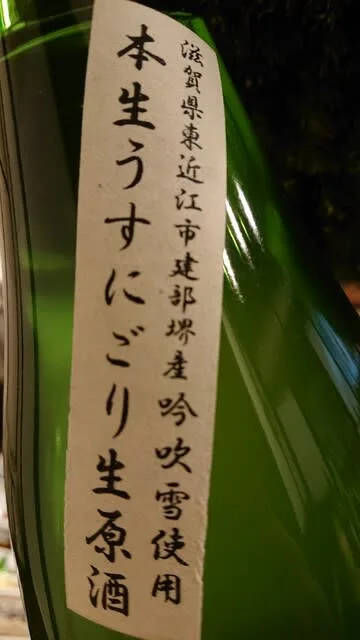 滋賀県東近江市建部堺産吟吹雪使用
本生うすにごり生原酒